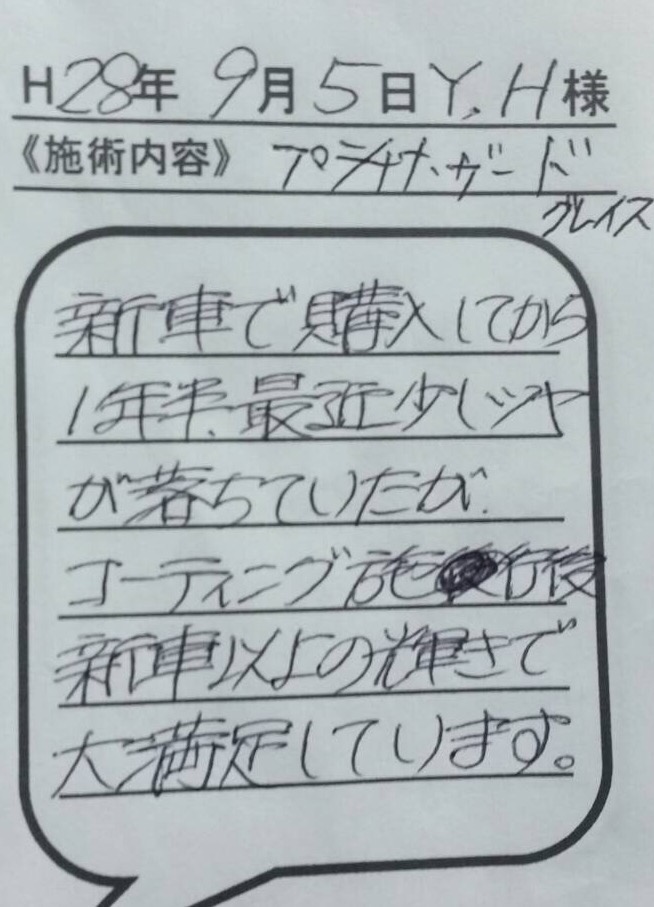 H28年 9月5日 Y.H様
《施術内容》 プラチナ.ガード
グレイス
新車で購入してから
1年半、最近少しツヤ
が落ちていたが、
コーティング施行後
新車以上の輝きで
大満足しています。